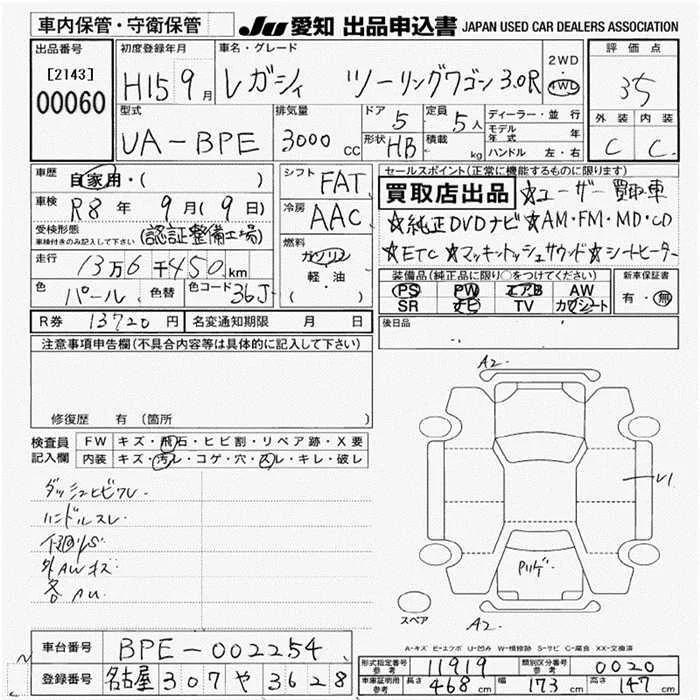 車内保管・守衛保管 JU 愛知 出品申込書 JAPAN USED CAR DEALERS ASSOCIATION
出品番号 [2143] 00060
初度登録年月 H15 9月
車名・グレード レガシィ ツーリングワゴン 3.0R
2WD・4WD
評価点 3.5
外装 C 内装 C
型式 UA-BPE
排気量 3000 CC
ドア 5 定員 5人
形状 HB 積載 kg
ディーラー・並行
モデル年式 年
ハンドル 左・右
車歴 自家用・( )
車検 R8年 9月(9日)
受検形態 車検付きのみ記入して下さい (認証整備工場)
走行 13万6千450km
色 パール 色替 色コード 36J
シフト FAT
冷房 AAC
燃料 ガソリン 軽・油 ( )
セールスポイント(正常に機能するものに限ります)
買取店出品 ☆ユーザー買取車
☆純正DVDナビ ☆AM・FM・MD・CD
☆ETC ☆マッキントッシュサウンド ☆シートヒーター
装備品(純正品に限り○をつけてください)
PS PW エアB AW
SR ナビ TV カワシート
新車保証書 有・無
R券 13720円 名変通知期限 月 日
後日品
注意事項申告欄(不具合内容等は具体的に記入して下さい)
修復歴 有 (箇所
検査員記入欄
FW キズ・飛石・ヒビ割・リペア跡・X要
内装 キズ・汚レ・コゲ・穴・スレ・キレ・破レ
ダッシュヒビワレ.
ハンドルスレ
下廻りS
外AWキズ
各AU
A2.
U1
Pリゲ
A2.
スペア
A-キズ E-エクボ U-凹み W-補修跡 S-サビ C-腐食 XX-交換済
車台番号 BPE-002254
登録番号 名古屋 307 や 3628
形式指定番号 参考 11919 類別区分番号 参考 0020
車庫証明用 参考 長さ 468 cm 幅 173 cm 高さ 147 cm